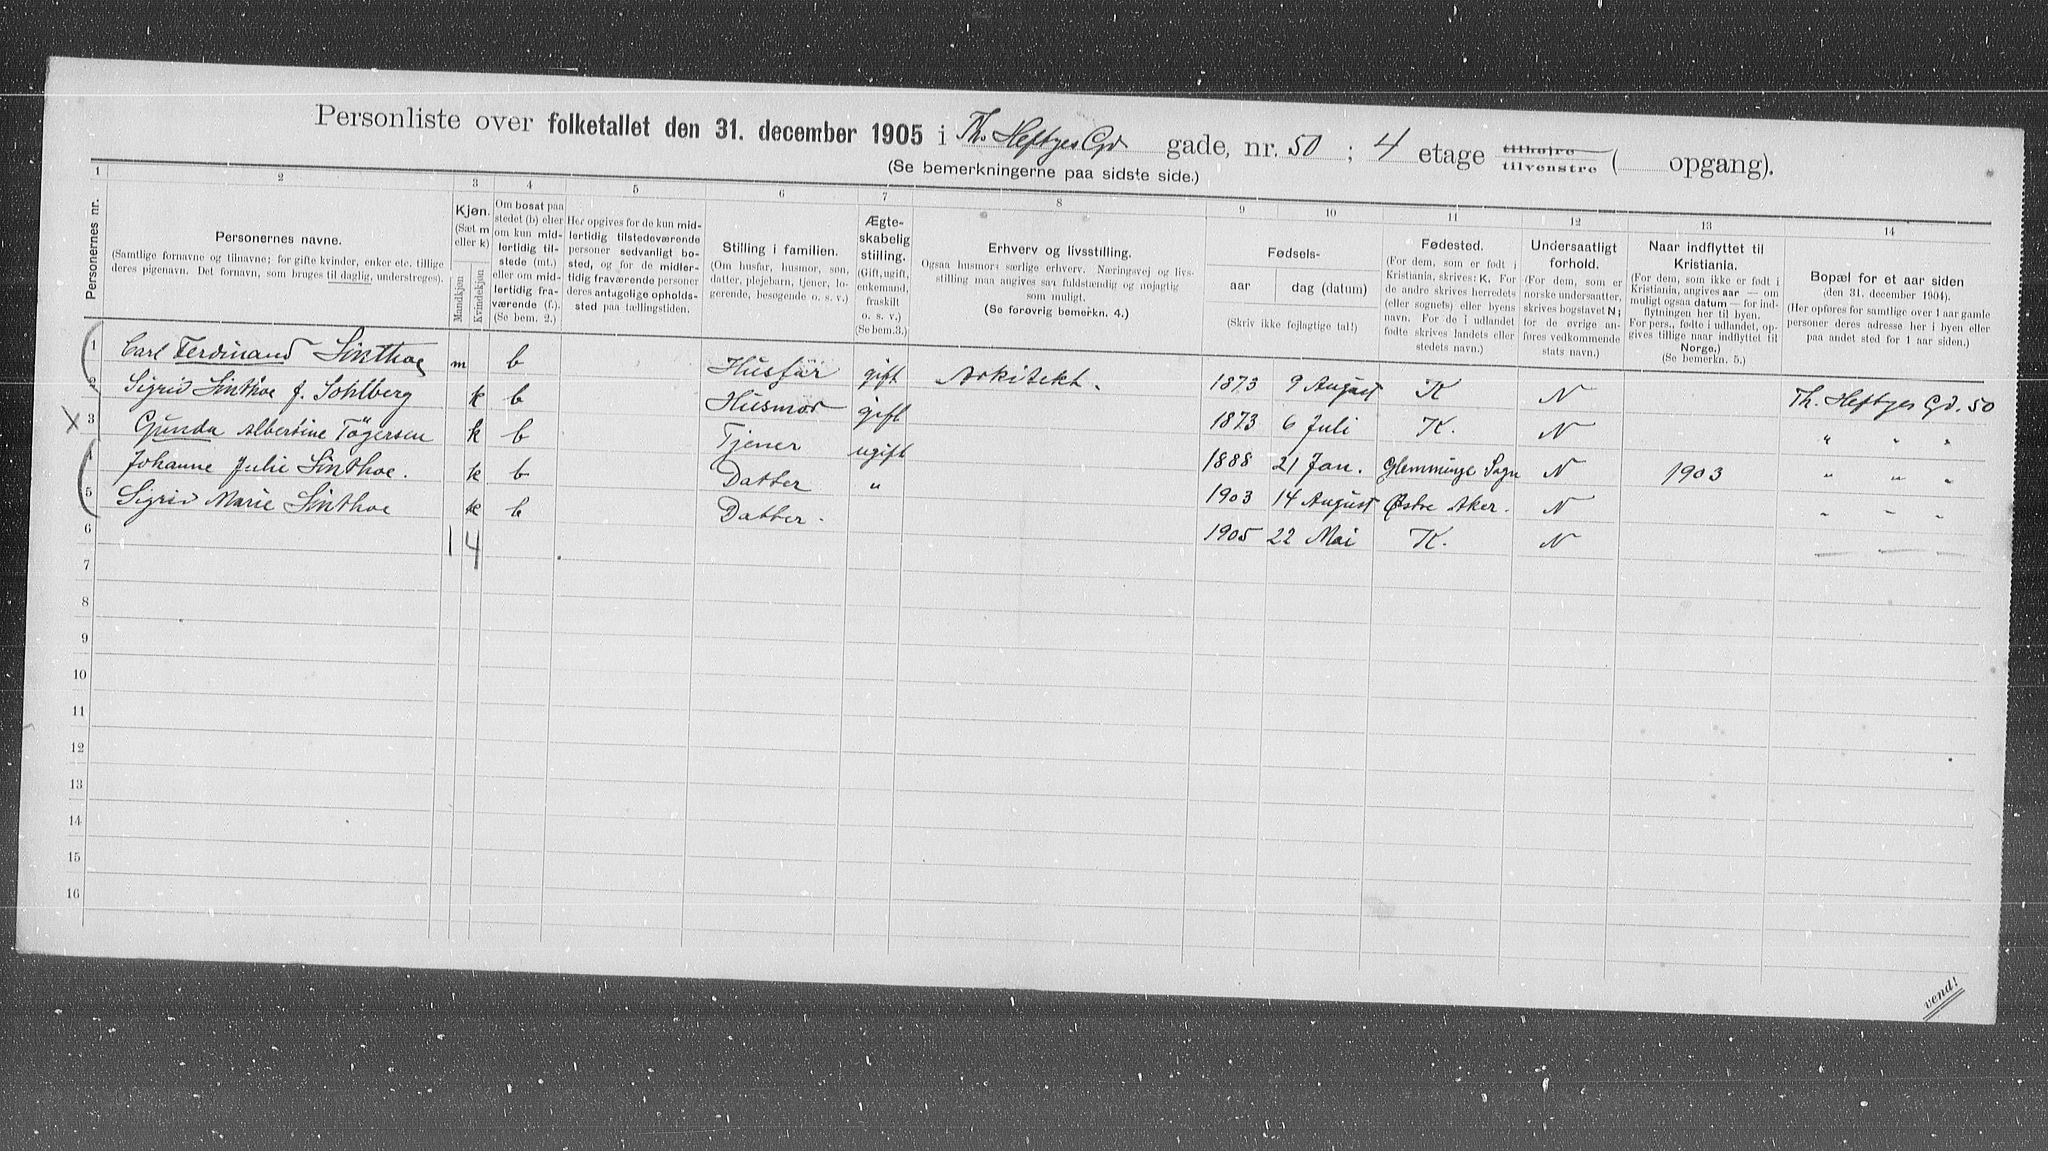 Personliste over folketallet den 31. december 1905 i Th. Heftyes Gd gade, nr. 50 ; 4 etage tilhøjre tilvenstre ( opgang).
(Se bemerkningerne paa sidste side.)
1 2 3 4 5 6 7 8 9 10 11 12 13 14
Personernes nr.
Personernes navne.
(Samtlige fornavne og tilnavne; for gifte kvinder, enker etc. tillige
deres pigenavn. Det fornavn, som bruges til daglig, understreges).
Kjøn.
(Sæt m
eller k)
Mandkjøn
Kvindekjøn
Om bosat paa
stedet (b) eller
om kun mid-
lertidig til-
stede (mt.)
eller om mid-
lertidig fra-
værende (f.).
(Se bem. 2.)
Her opgives for de kun mid-
lertidig tilstedeværende
personer sedvanligt bo-
sted, og for de midler-
tidig fraværende personer
deres antagelige opholds-
sted paa tællingstiden.
Stilling i familien.
(Om husfar, husmor, søn,
datter, plejebarn, tjener, lo-
gerende, besøgende o. s. v.)
Ægte-
skabelig
stilling.
(Gift, ugift,
enkemand,
fraskilt
o. s. v.)
(Se bem. 3.)
Erhverv og livsstilling.
Ogsaa husmors særlige erhverv. Næringsvej og livs-
stilling maa angives saa fuldstændig og nøjagtig
som muligt.
(Se forøvrig bemerkn. 4.)
Fødsels-
aar
dag (datum)
(Skriv ikke fejlagtige tal!)
Fødested.
(For dem, som er født i
Kristiania, skrives: K. For
de andre skrives herredets
(eller sognets) eller byens
navn. For de i udlandet
fødte skrives landets eller
stedets navn.)
Undersaatligt
forhold.
(For dem, som er
norske undersaatter,
skrives bogstavet N;
for de øvrige an-
føres vedkommende
stats navn.)
Naar indflyttet til
Kristiania.
(For dem, som ikke er født i
Kristiania, angives aar — om
muligt ogsaa datum — for ind-
flytningen her til byen.
For pers., fødte i udlandet, op-
gives tillige naar indflyttet til
Norge.)
(Se bemerkn. 5.)
Bopæl for et aar siden
(den 31. december 1904).
(Her opføres for samtlige over 1 aar gamle
personer deres adresse her i byen eller
paa andet sted for 1 aar siden.)
1 Carl Ferdinand Sinthoe m b Husfar gift Arkitekt. 1873 9 August K N Th. Heftyes Gd. 50
2 Sigrid Sinthoe f. Sohlberg k b Husmor gift 1873 6 Juli K. N " " "
X 3 Gunda Albertine Tögersen k b Tjener ugift 1888 21 Jan. Glemminge Sogn N 1903 " " "
4 Johanne Julie Sinthoe. k b Datter " 1903 14 August Østre Aker. N " " "
5 Sigrid Marie Sinthoe k b Datter. 1905 22 Mai K. N — — —
6 1 4
7
8
9
10
11
12
13
14
15
16
vend!